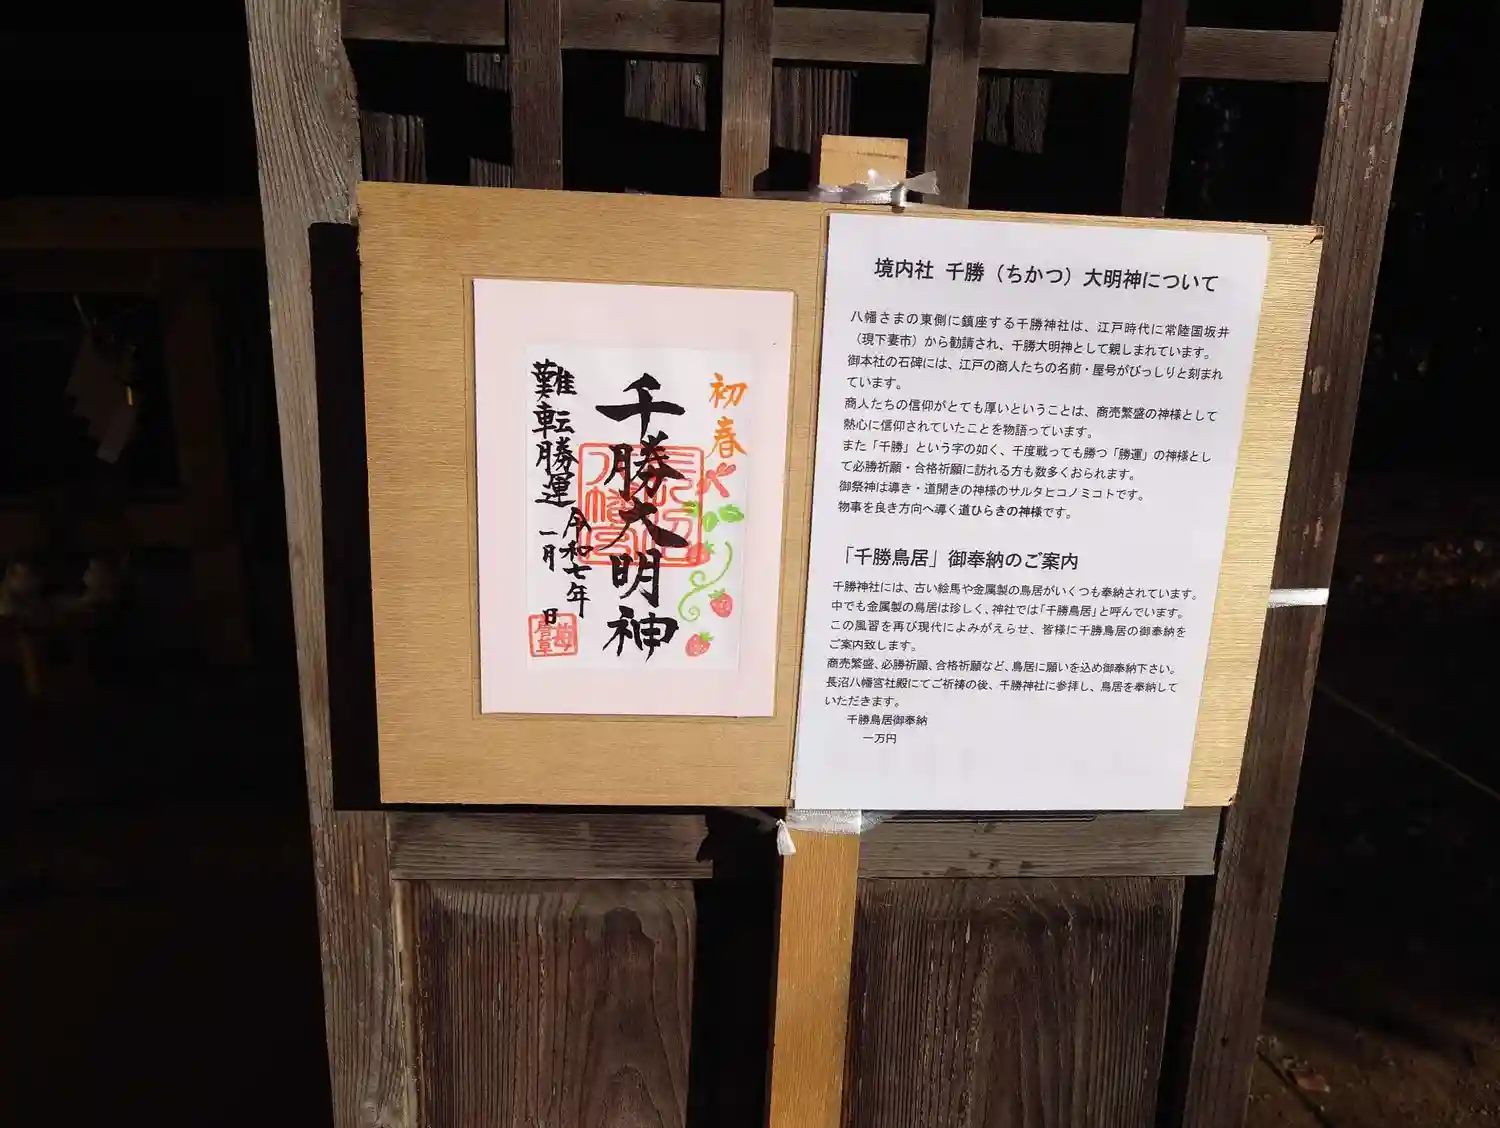 初春
千勝大明神
難転勝運
令和七年
一月
日
境内社 千勝（ちかつ）大明神について
八幡さまの東側に鎮座する千勝神社は、江戸時代に常陸国坂井
（現下妻市）から勧請され、千勝大明神として親しまれています。
御本社の石碑には、江戸の商人たちの名前・屋号がびっしりと刻まれ
ています。
商人たちの信仰がとても厚いということは、商売繁盛の神様として
熱心に信仰されていたことを物語っています。
また「千勝」という字の如く、千度戦っても勝つ「勝運」の神様とし
て必勝祈願・合格祈願に訪れる方も数多くおられます。
御祭神は導き・道開きの神様のサルタヒコノミコトです。
物事を良き方向へ導く道ひらきの神様です。
「千勝鳥居」御奉納のご案内
千勝神社には、古い絵馬や金属製の鳥居がいくつも奉納されています。
中でも金属製の鳥居は珍しく、神社では「千勝鳥居」と呼んでいます。
この風習を再び現代によみがえらせ、皆様に千勝鳥居の御奉納を
ご案内致します。
商売繁盛、必勝祈願、合格祈願など、鳥居に願いを込め御奉納下さい。
長沼八幡宮社殿にてご祈祷の後、千勝神社に参拝し、鳥居を奉納して
いただきます。
千勝鳥居御奉納
一万円